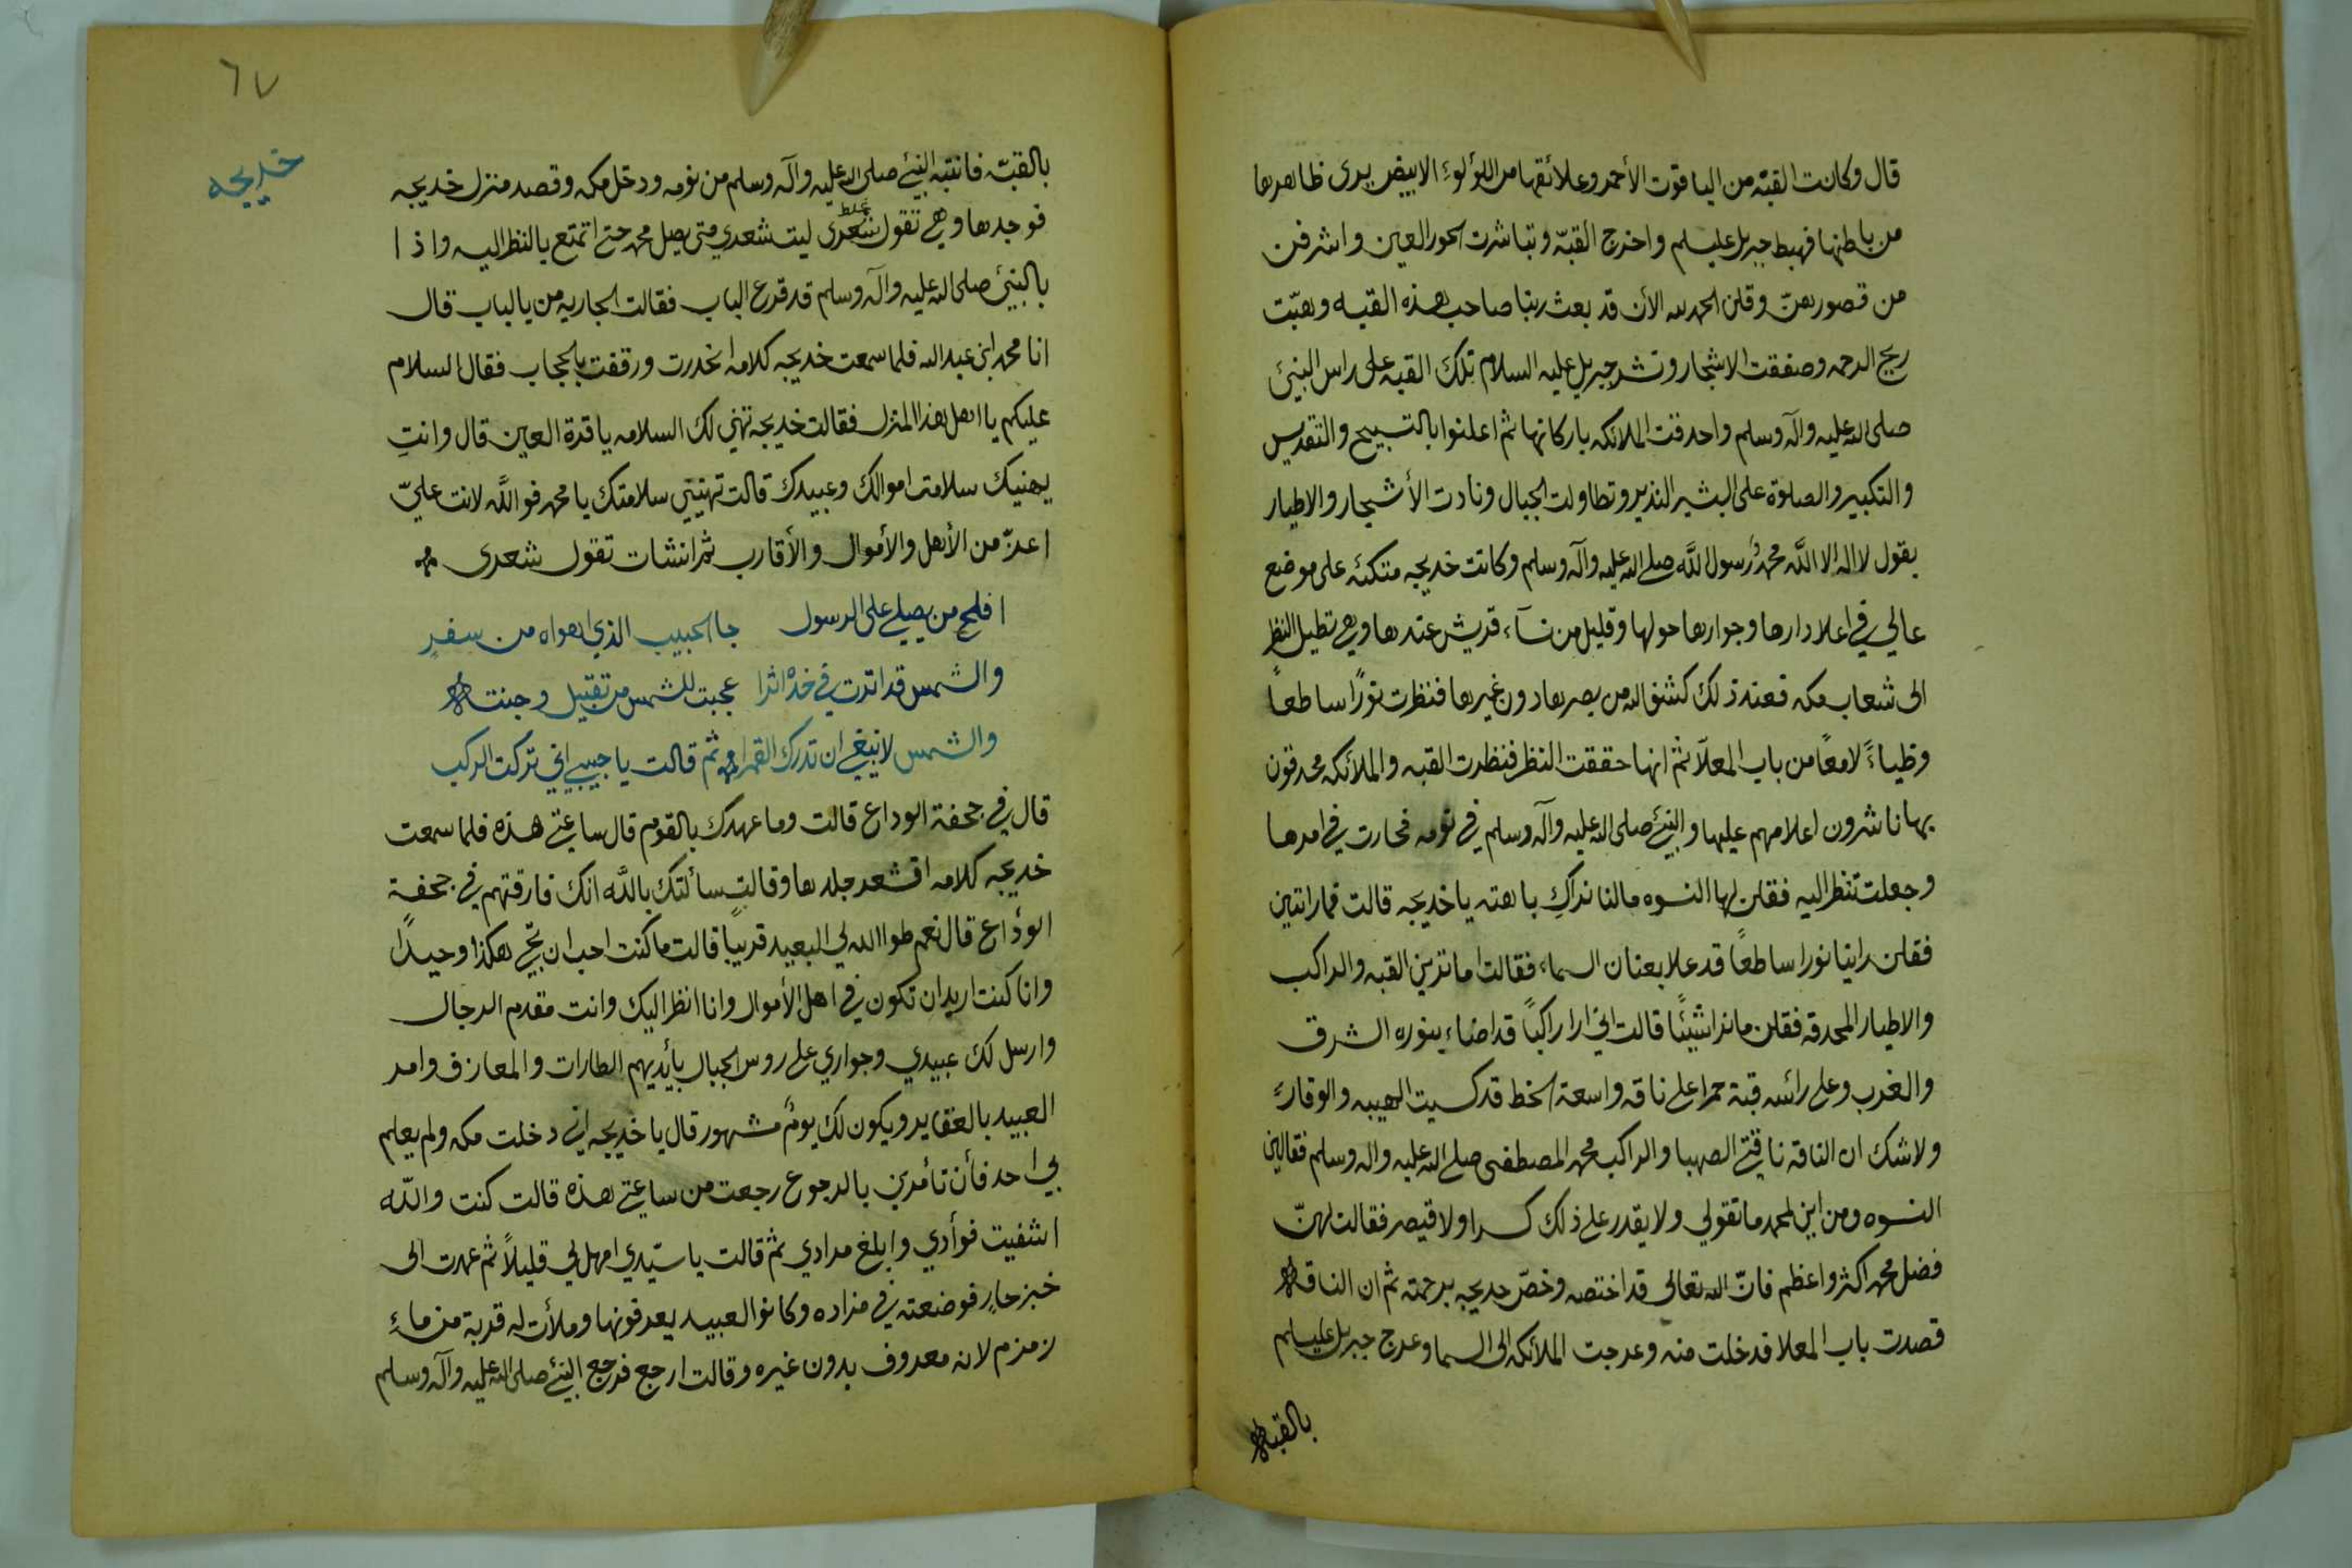 قال وكانت القبّه من الياقوت الأحمر وعلائقها من اللؤلوءِ الابيض يرى ظاهرها
من باطنها فهبط جبريل عليسلم واخرج القبّه وتباشرت الحور العين واشرفن
من قصورهنّ وقلن الحمد لله الأن قد بعث ربنا صاحب هذه القبه وهبّت
ريح الرحمه وصفقت الاشجار ونشر جبريل عليه السلام تلك القبه على راس النبيّ
صلى الله عليه وآله وسلم واحدقت الملائكه باركانها ثم اعلنوا بالتسبيح والتقديس
والتكبير والصلوٰة على البشير النذير وتطاولت الجبال ونادت الأشجار والاطيار
بقول لا اله الا اللّه محمدٌ رسول اللّه صلى الله عليه وآله وسلم وكانت خديجه متكئه على موضع
عالي في اعلا دارها وجوارها حولها وقليل من نسآء قريش عندها وهي تطيل النظر
الى شعاب مكه فعند ذلك كشف الله من بصرها دون غيرها فنظرت نورًا ساطعاً
وظياءً لامعًا من باب المعلآ ثم انها حققت النظر فنظرت القبه والملائكه محدقون
بها ناشرون اعلامهم عليها والنبيّ صلى الله عليه وآله وسلم في نومه فحارت في امرها
وجعلت تنظر اليه فقلن لها النسوه مالنا نراكِ باهته يا خديجه قالت فما رائتين
فقلن راينا نورا ساطعًا قد علا بعنان السماء فقالت اما ترين القبه والراكب
والاطيار المحدقه فقلن ما نرا شيئًا قالت اني ارا راكبًا قد اضاء بنوره الشرق
والغرب وعلى رائسه قبة حمرا على ناقه واسعة الخط قد كسيت الهيبه والوقارُ
ولا شك ان الناقه ناقتي الصهبا والراكب محمد المصطفى صلى الله عليه واله وسلم فقالين
النسوه ومن اين لمحمد ما تقولي ولا يقدر على ذلك كسرا ولا قيصر فقالت لهنّ
فضل محمد اكثر واعظم فانّ الله تعالى قد اختصه وخصّ خديجه برحمته ثم ان الناقه
قصدت باب المعلا فدخلت منه وعرجت الملائكه الى السما وعرج جبريل عليسلم
بالقبه
٦٧
خديجه
بالقبّه فانتبه النبيّ صلى الله عليه وآله وسلم من نومه ودخل مكه وقصد منزل خديجه
فوجدها وهي تقول شعرى غلط ليت شعري متى يصل محمد حتى اتمتع بالنظر اليه واذا
بالنبيّ صلى الله عليه وآله وسلم قد قرع الباب فقالت الجاريه من بالباب قال
انا محمد ابن عبد الله فلما سمعت خديجه كلامه انحدرت ووقفت بالحجاب فقال السلام
عليكم يا اهل هذا المنزل فقالت خديجه تهني لك السلامه يا قرة العين قال وانتِ
يهنيك سلامت اموالك وعبيدك قالت تهنيني سلامتك يا محمد فو اللّه لانت عليّ
اعزّ من الأهل والأموال والأقارب ثم انشات تقول شعرى
افلح من يصلي على الرسول جا الحبيب الذي اهواه من سفرٍ
والشمس قد اثرت في خدّه اثرا عجبت للشمس من تقبيل وجنته
والشمس لا ينبغي ان تدرك القمرا ثم قالت يا حبيبي اني تركت الركب
قال في جحفة الوداع قالت وما عهدك بالقوم قال ساعتي هذه فلما سمعت
خديجه كلامه اقشعر جلدها وقالت سائلتك باللّه انك فارقتهم في جحفة
الودُاع قال نعم طوا الله لي البعيد قريبًا قالت ما كنت احب ان تجي هكذا وحيدًا
وانا كنت اريد ان تكون في اهل الأموال وانا انظر اليك وانت مقدم الرجال
وارسل لك عبيدي وجواري على روس الجبال بأيديهم الطارات والمعازف وامر
العبيد بالعقاير ويكون لك يومٌ مشهور قال يا خديجه اني دخلت مكه ولم يعلم
بي احد فأن تأمرين بالرجوع رجعت من ساعتي هذه قالت كنت واللّه
اشفيت فوأدي وابلغ مرادي ثم قالت يا سيّدي امهل لي قليلاً ثم عمدت الى
خبز حارٍ فوضعته في مزاده وكانوا العبيد يعرفونها وملأت له قربة من ماءِ
زمزم لانه معروف بدون غيره وقالت ارجع فرجع النبيّ صلى الله عليه وآله وسلم